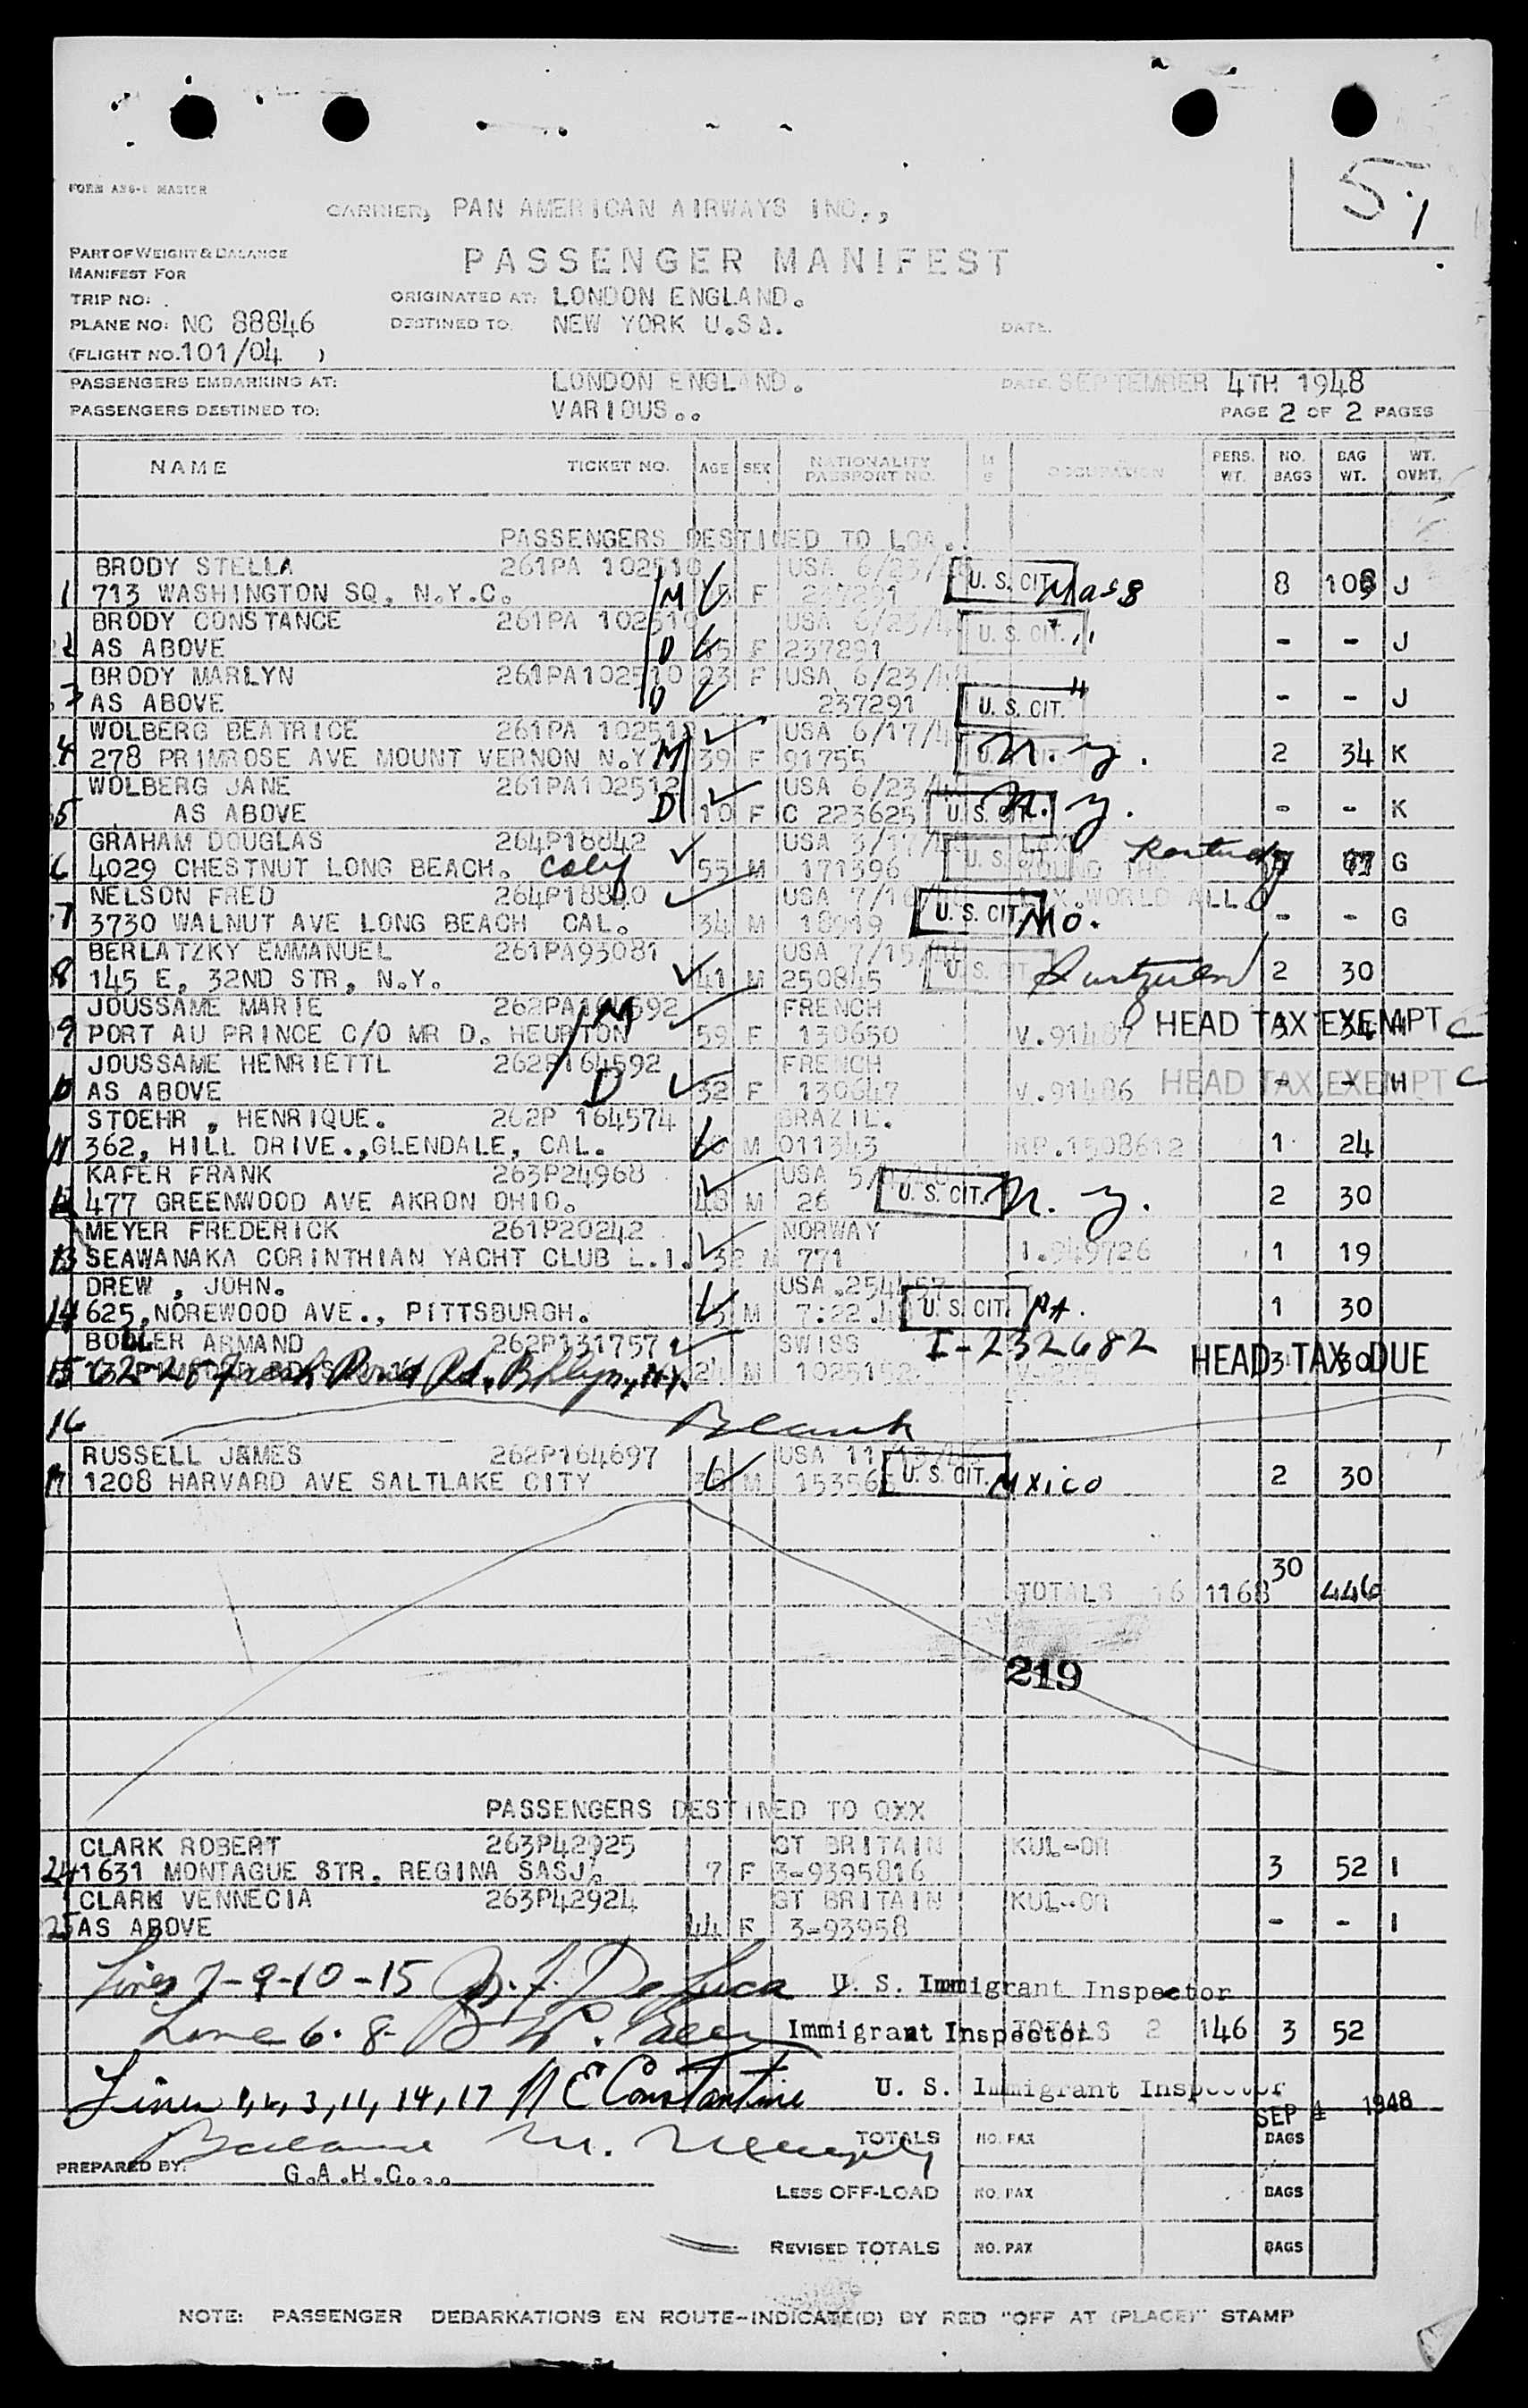 5.1
FORM AS6-1 MASTER
CARRIER, PAN AMERICAN AIRWAYS INC.,
PART OF WEIGHT & BALANCE
MANIFEST FOR
PASSENGER MANIFEST
TRIP NO: .
ORIGINATED AT: LONDON ENGLAND.
PLANE NO: NC 88846
DESTINED TO: NEW YORK U.S.A.
DATE.
(FLIGHT NO. 101/04 )
PASSENGERS EMBARKING AT: LONDON ENGLAND. DATE. SEPTEMBER 4TH 1948
PASSENGERS DESTINED TO: VARIOUS.. PAGE 2 OF 2 PAGES
NAME TICKET NO. AGE SEX NATIONALITY PASSPORT NO. M S OCCUPATION PERS. WT. NO. BAGS BAG WT. WT. OVHT.
PASSENGERS DESTINED TO LGA..
BRODY STELLA 261PA 102510 USA 6/23/48
1 713 WASHINGTON SQ, N.Y.C. M F 237291 U. S. CIT. Mass 8 108 J
BRODY CONSTANCE 261PA 102510 USA 6/23/48
2 AS ABOVE D 15 F 237291 U. S. CIT. " - - J
BRODY MARLYN 261PA102510 23 F USA 6/23/48
3 AS ABOVE D 237291 U. S. CIT. " - - J
WOLBERG BEATRICE 261PA 102512 USA 6/17/4
4 278 PRIMROSE AVE MOUNT VERNON N.Y M 39 F 91755 U. S. CIT. N. Y. 2 34 K
WOLBERG JANE 261PA102512 USA 6/23/4
5 AS ABOVE D 10 F C 223625 U. S. CIT. N. Y. - - K
GRAHAM DOUGLAS 264P18842 USA 3/17/4
6 4029 CHESTNUT LONG BEACH. Calif 55 M 171396 U. S. CIT. ROUND THE Kentucky G
NELSON FRED 264P18840 USA 7/16/48 WORLD ALL.
7 3730 WALNUT AVE LONG BEACH CAL. 34 M 18919 U. S. CIT. Mo. - - G
BERLATZKY EMMANUEL 261PA93081 USA 7/15/48
8 145 E. 32ND STR, N.Y. 41 M 250845 U. S. CIT. 2 30
JOUSSAME MARIE 262PA164592 FRENCH
9 PORT AU PRINCE C/O MR D. HEURTON M 59 F 130650 V.91487 HEAD TAX EXEMPT 3 34 H C
JOUSSAME HENRIETTL 262P164592 FRENCH
10 AS ABOVE D 32 F 130647 V.91486 HEAD TAX EXEMPT - - H C
STOEHR , HENRIQUE. 262P 164574 BRAZIL.
11 362, HILL DRIVE.,GLENDALE, CAL. M 011343 RP.1508612 1 24
KAFER FRANK 263P24968 USA 5/
12 477 GREENWOOD AVE AKRON OHIO. 48 M 26 U. S. CIT. N. Y. 2 30
MEYER FREDERICK 261P20242 NORWAY
13 SEAWANAKA CORINTHIAN YACHT CLUB L.I. 32 M 771 I.949726 1 19
DREW , JOHN. USA.254457
14 625,NOREWOOD AVE., PITTSBURGH. M 7:22.4 U. S. CIT. PA. 1 30
BOLLER ARMAND 262P131757 SWISS I-232682
15 62-28 Fresh Pond Rd, Bklyn, N.Y. 24 M 1025152 HEAD TAX DUE 3 30
16 Blank
RUSSELL JAMES 262P164697 USA 11/13/
17 1208 HARVARD AVE SALTLAKE CITY M 15356 U. S. CIT. Mxico 2 30
TOTALS 16 1168 30 446
219
PASSENGERS DESTINED TO QXX
CLARK ROBERT 263P42925 GT BRITAIN KUL-OM
24 1631 MONTAGUE STR. REGINA SASJ. 7 F 3-9395816 3 52 I
CLARK VENNECIA 263P42924 GT BRITAIN KUL-OM
25 AS ABOVE 44 F 3-93958 - - I
Lines 7-9-10-15 De Luca U. S. Immigrant Inspector
Line 6. 8- Immigrant Inspector TOTALS 2 146 3 52
Lines 1, 2, 3, 11, 14, 17 N E Constantine U. S. Immigrant Inspector
SEP 4 1948
Balance M.
TOTALS NO. PAX BAGS
PREPARED BY: G.A.H.C...
LESS OFF-LOAD NO. PAX BAGS
REVISED TOTALS NO. PAX BAGS
NOTE: PASSENGER DEBARKATIONS EN ROUTE-INDICATE(D) BY RED "OFF AT (PLACE)" STAMP